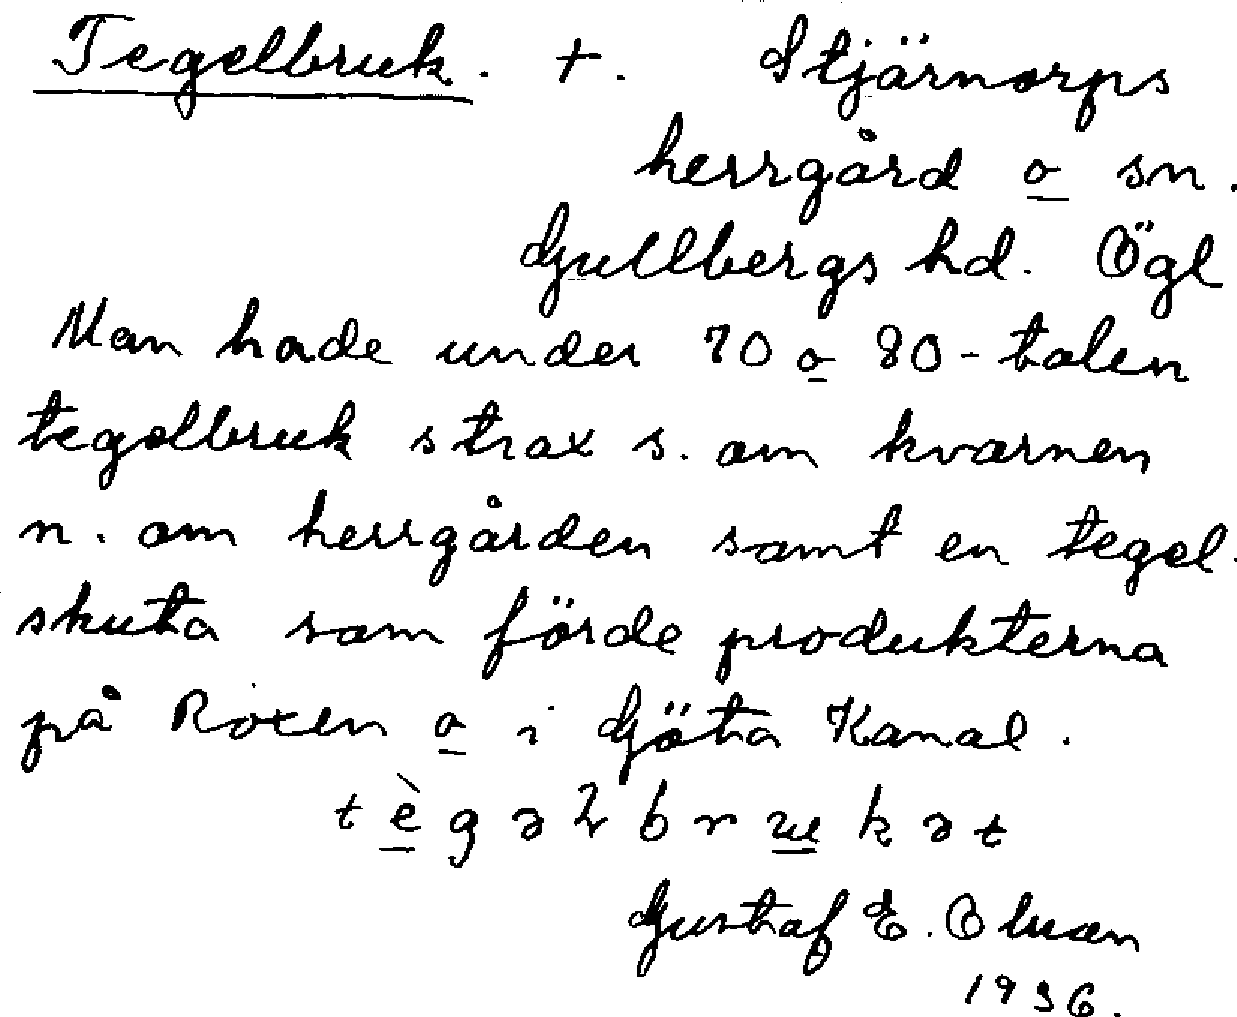 Tegelbruk. +. Stjärnorps
herrgård o sn.
Gullbergs hd. Ögl
Man hade under 70 o 80-talen
tegelbruk strax s. om kvarnen
n. om herrgården samt en tegel-
skuta som förde produkterna
på Roxen o i Göta Kanal.
tègəlbrukət
Gustaf E. Olsson
1936.